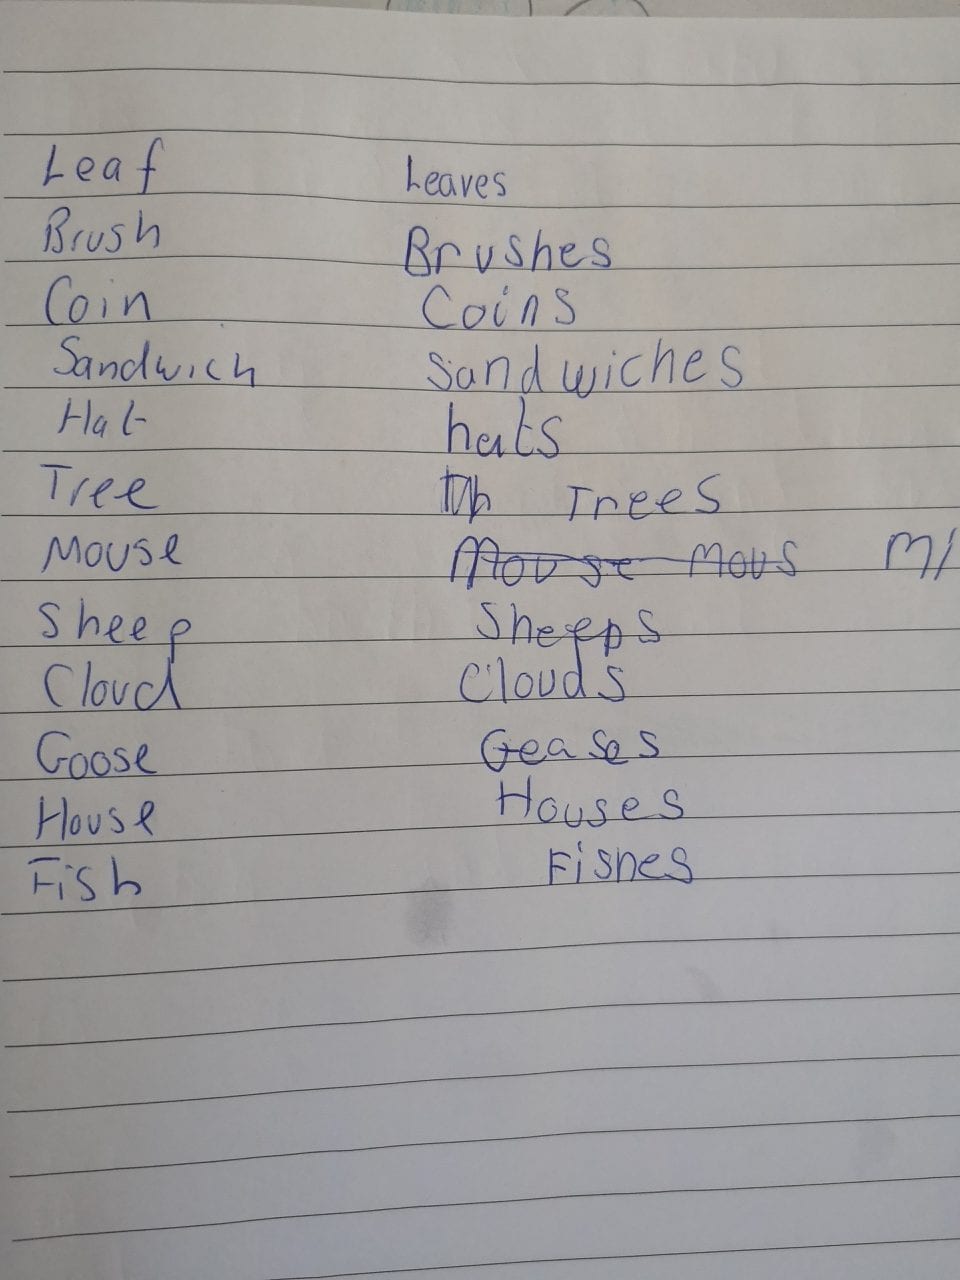 Leaf Leaves
Brush Brushes
Coin Coins
Sandwich Sandwiches
Hat hats
Tree Trees
Mouse Mouse Mous
Sheep Sheeps
Cloud Clouds
Goose Geases
House Houses
Fish Fishes